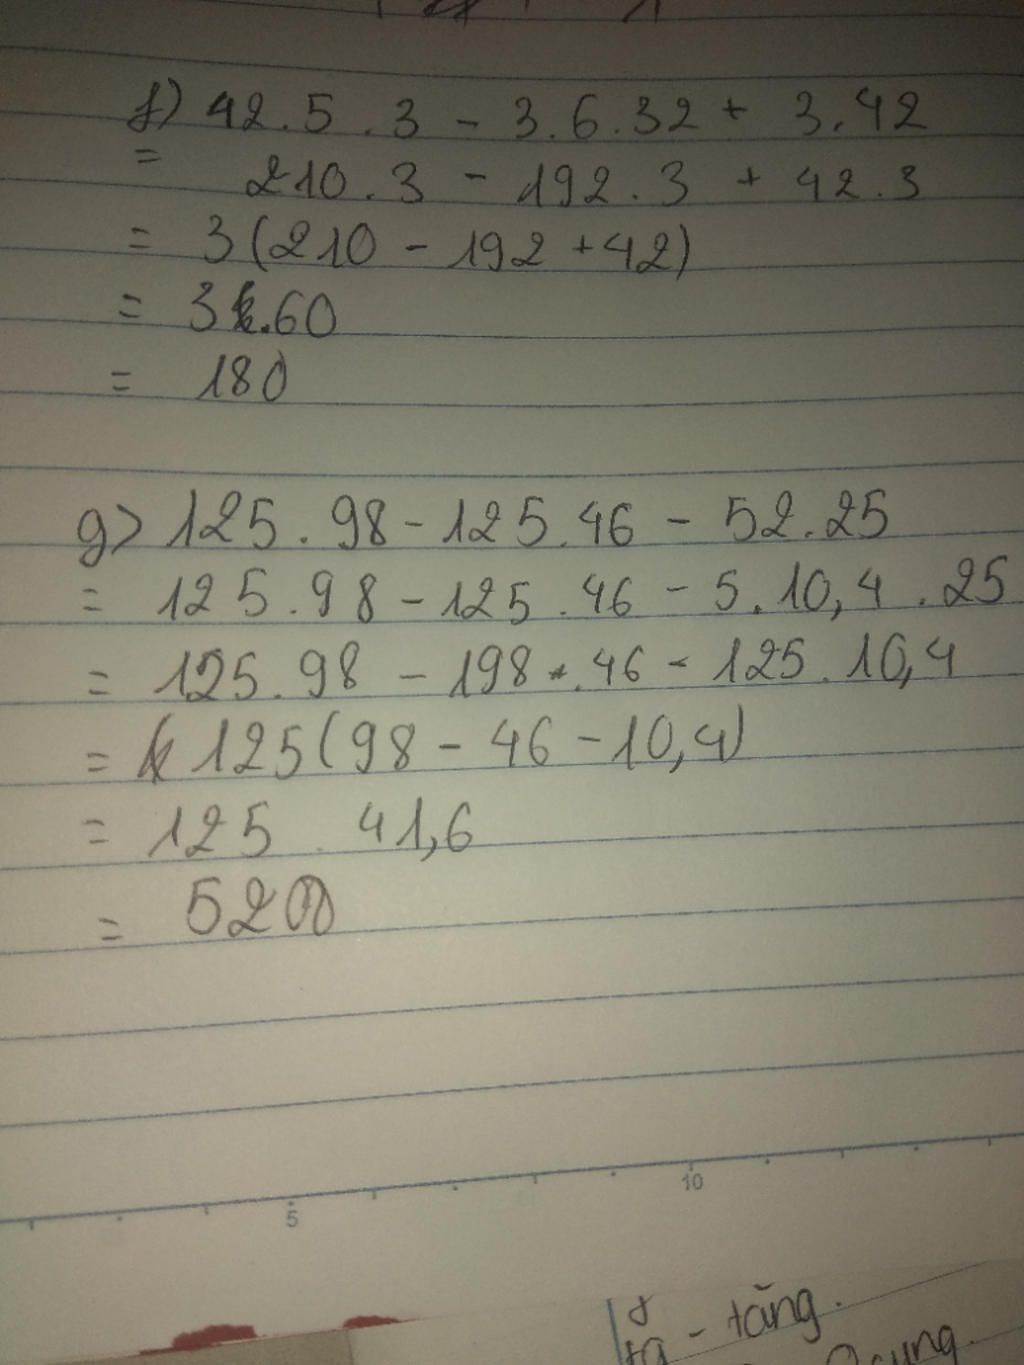 f) 42.5.3 - 3.6.32 + 3.42
= 210.3 - 192.3 + 42.3
= 3(210 - 192 + 42)
= 3.60
= 180
g) 125.98 - 125.46 - 52.25
= 125.98 - 125.46 - 5.10,4.25
= 125.98 - 198.46 - 125.10,4
= 125(98 - 46 - 10,4)
= 125.41,6
= 5200
5 10
- tăng.